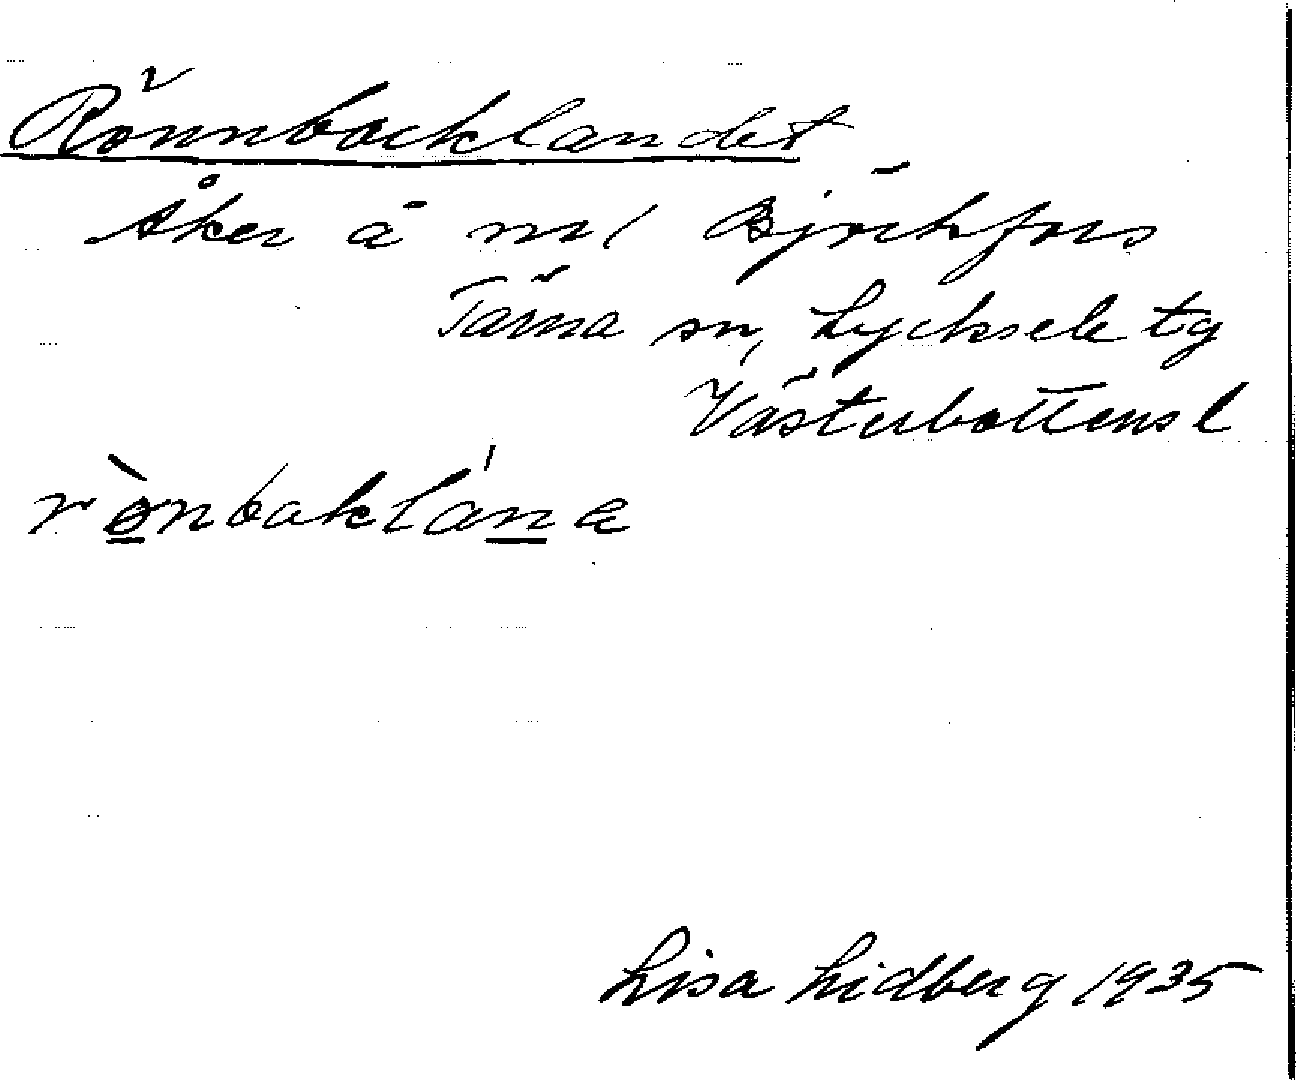 Rönnbacklandet
Åker å n:r 1 Björkfors
Tärna sn, Lycksele tg
Västerbottens l
rònbaklána
Lisa Lidberg 1935